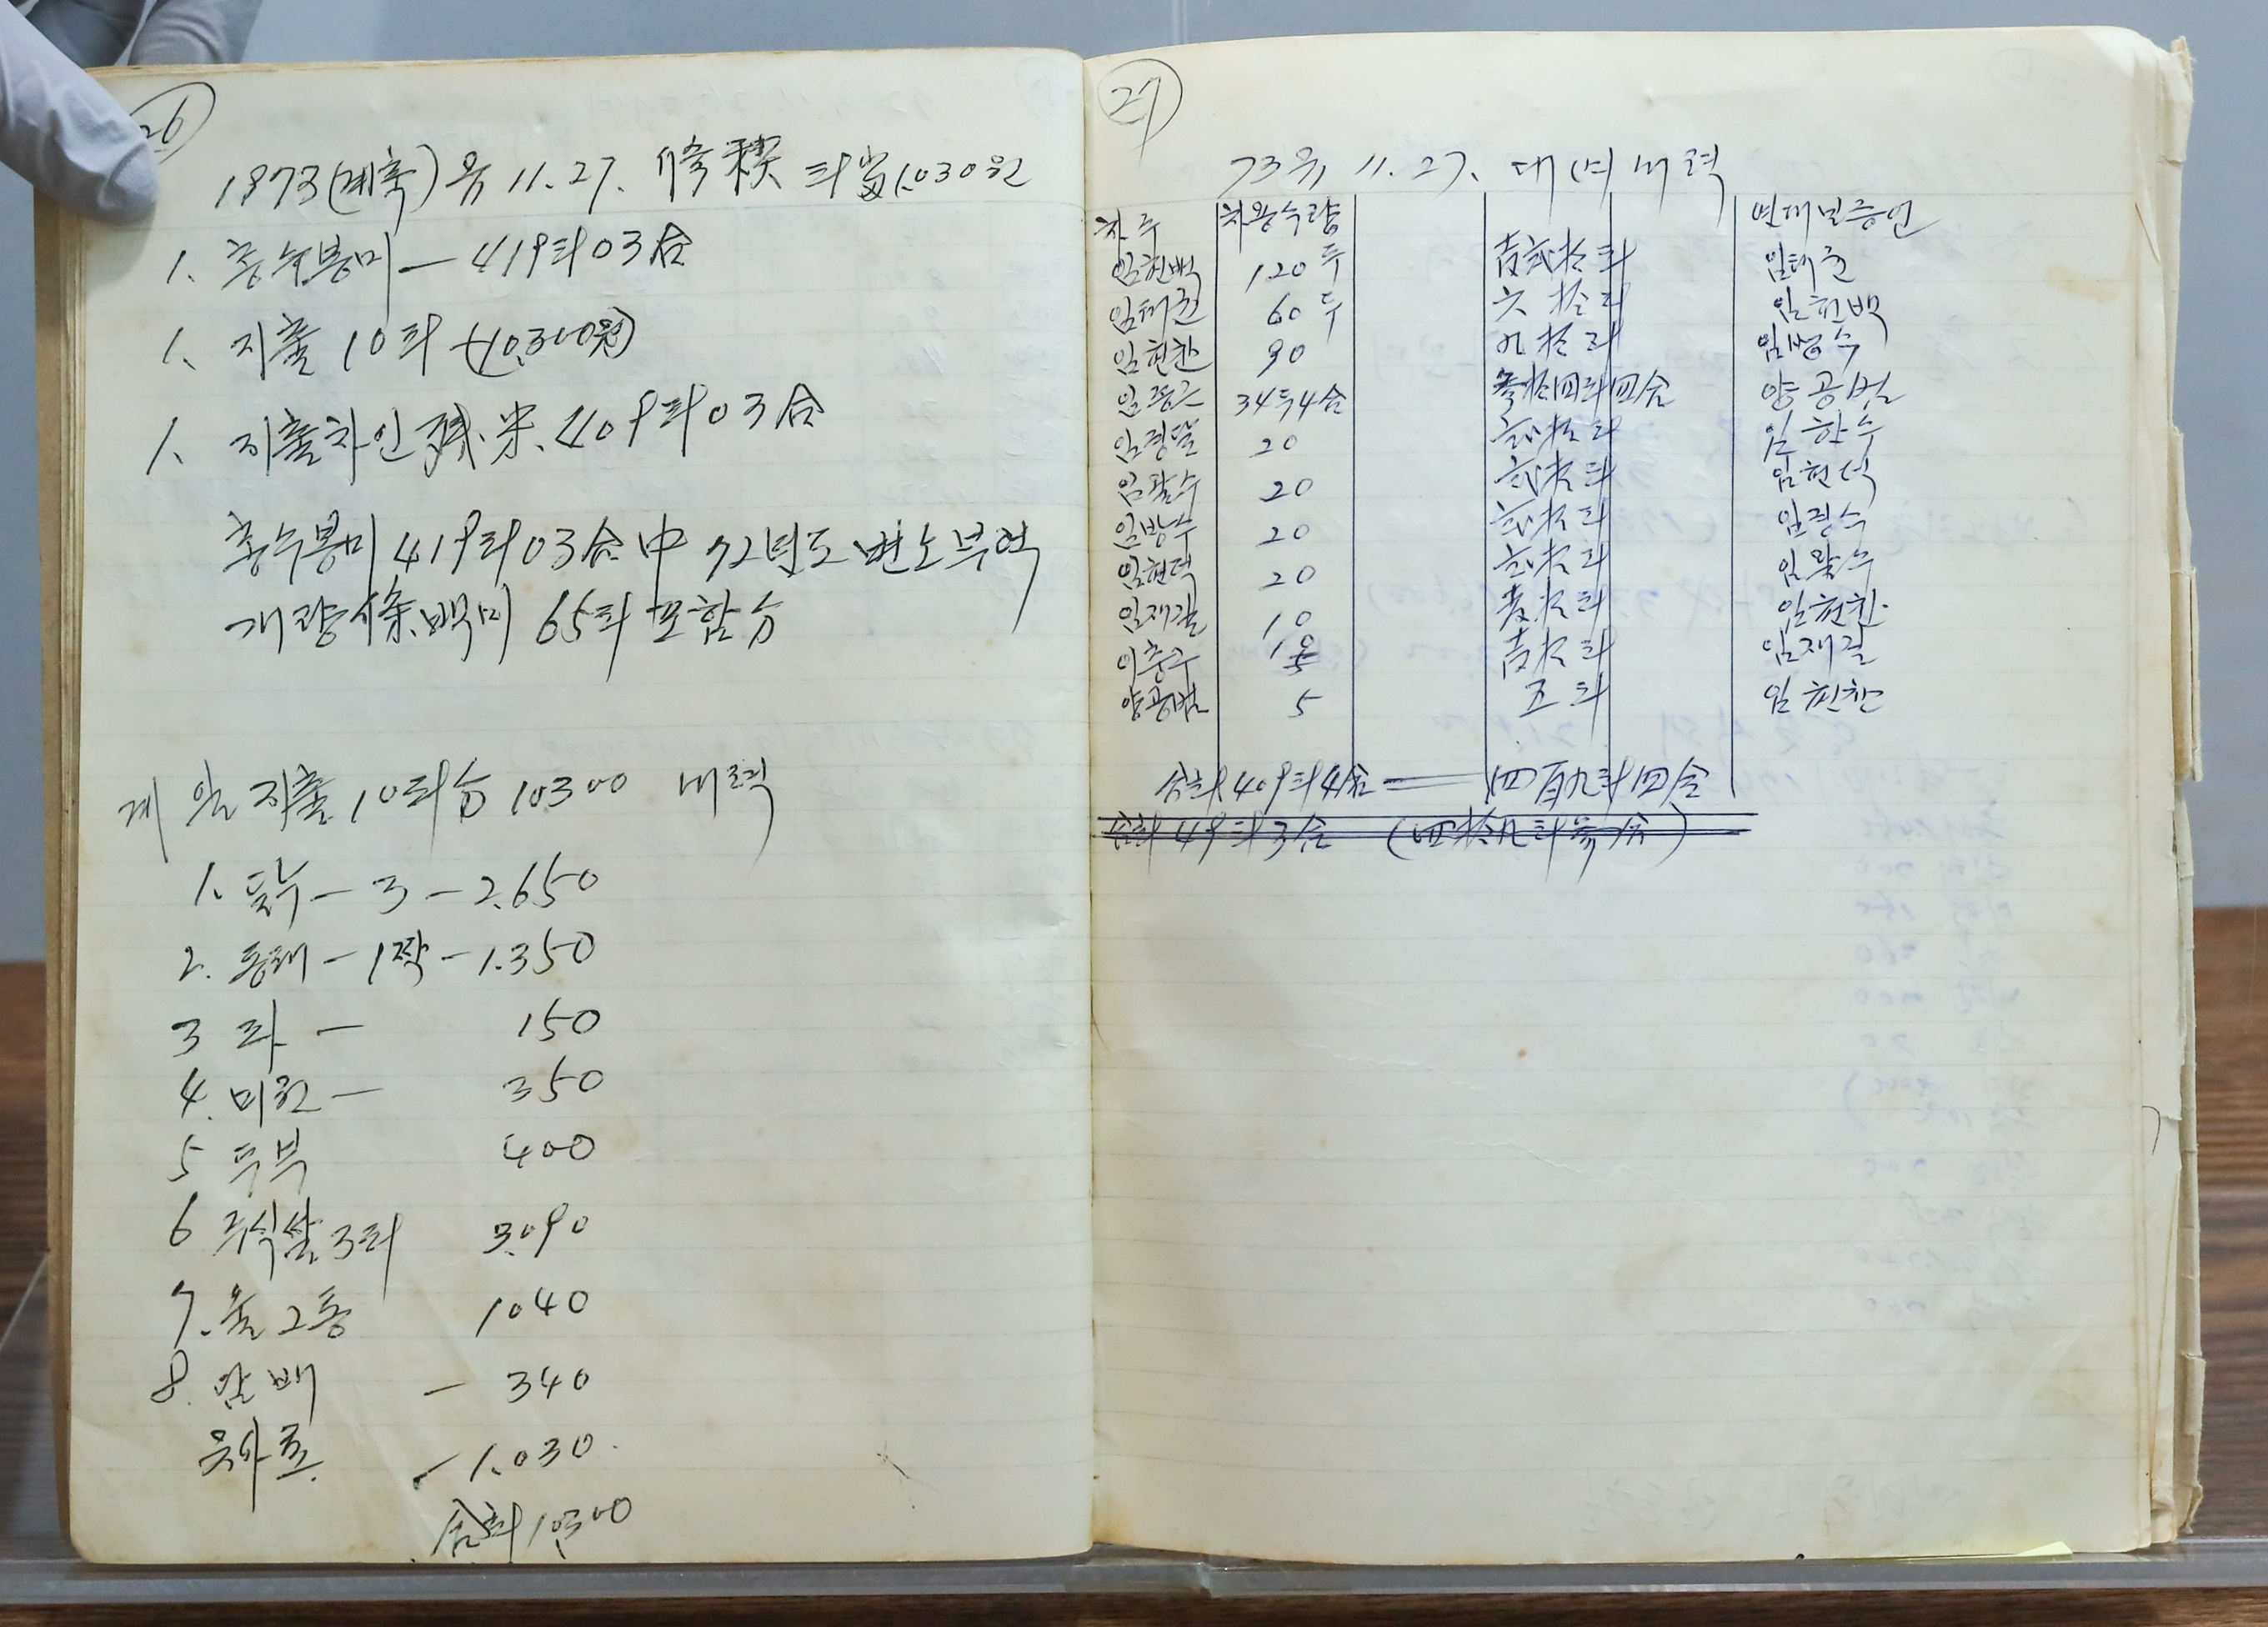 26
1973(계축)음 11.27. 修稧 斗当1.030원
1. 총수봉미 - 419斗03合
1. 지출 10斗 (10,300원)
1. 지출차인 残米. 409斗03合
총수봉미 419斗03合 中 72년도 변소부역
개량條 백미 65斗 포함分
계일 지출 10斗分 10300 내력
1. 돌수 - 3 - 2.650
2. 동태 - 1짝 - 1.350
3 파 - 150
4. 미원 - 350
5 두부 400
6 주식쌀 3斗 3.090
7. 술 2통 1040
8. 담배 - 340
유사료 - 1.030
合計 10300
27
73음, 11.27. 대여내력
차주 차용수량 연대보증인
임헌백 120두 壱弐拾斗 임태권
임태권 60두 六拾斗 임헌백
임헌찬 90 九拾斗 임병수
34두4合 参拾四斗四合 양공범
임경달 20 弐拾斗 임학수
임팔수 20 弐拾斗 임현덕
임방수 20 弐拾斗 임광수
임현덕 20 弐拾斗 임팔수
임재길 10 壱拾斗 임헌찬
이충구 10 壱拾斗 임재길
양공범 5 五斗 임헌찬
合計 409斗4合 = 四百九斗四合
合計 49斗3合 (四拾九斗参合)